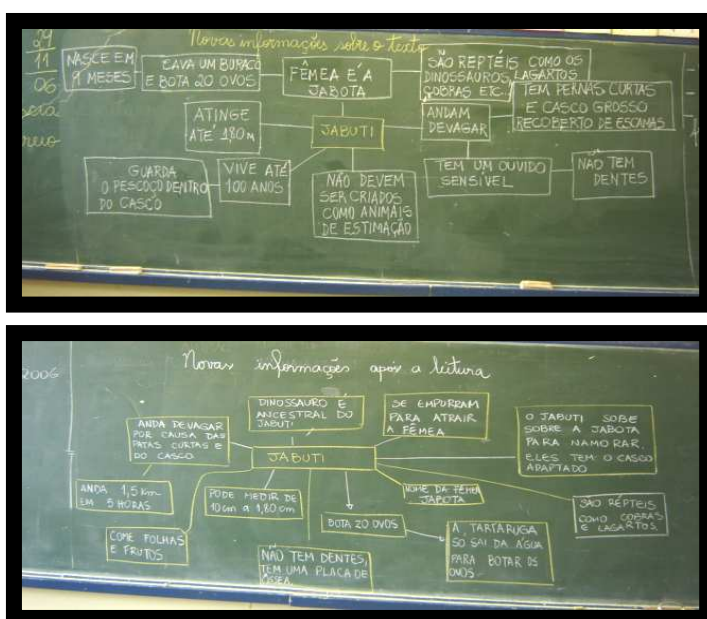 29
11
06
Novas informações sobre o texto
NASCE EM
9 MESES
CAVA UM BURACO
E BOTA 20 OVOS
FÊMEA É A
JABOTA
SÃO REPTÉIS COMO OS
DINOSSAUROS, LAGARTOS
COBRAS ETC.
ATINGE
ATÉ 1,80 m
JABUTI
ANDAM
DEVAGAR
TEM PERNAS CURTAS
E CASCO GROSSO
RECOBERTO DE ESCAMAS
GUARDA
O PESCOÇO DENTRO
DO CASCO
VIVE ATÉ
100 ANOS
NÃO DEVEM
SER CRIADOS
COMO ANIMAIS
DE ESTIMAÇÃO
TEM UM OUVIDO
SENSÍVEL
NÃO TEM
DENTES
2006
Novas informações após a leitura
ANDA DEVAGAR
POR CAUSA DAS
PATAS CURTAS E
DO CASCO
DINOSSAURO É
ANCESTRAL DO
JABUTI
SE EMPURRAM
PARA ATRAIR
A FÊMEA
O JABUTI SOBE
SOBRE A JABOTA
PARA NAMORAR.
ELES TEM O CASCO
ADAPTADO
JABUTI
ANDA 1,5 km
EM 5 HORAS
PODE MEDIR DE
10 cm a 1,80 cm
NOME DA FÊMEA
JABOTA
SÃO RÉPTEIS
COMO COBRAS
E LAGARTOS.
COME FOLHAS
E FRUTOS
BOTA 20 OVOS
A TARTARUGA
SÓ SAI DA ÁGUA
PARA BOTAR OS
OVOS
NÃO TEM DENTES,
TEM UMA PLACA DE